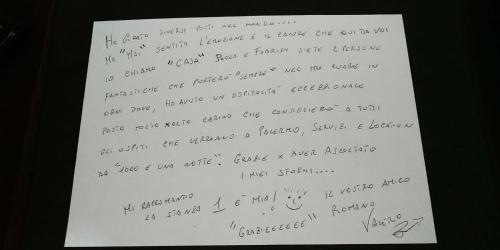 HO GIRATO DIVERSI POSTI NEL MONDO....
MA "MAI" SENTITO L'EMOZIONE E IL CALORE CHE QUI DA VOI
IO CHIAMO "CASA" PAOLA E FABRIZIO SIETE 2 PERSONE
FANTASTICHE CHE PORTERÒ "SEMPRE" NEL MIO CUORE IN
OGNI DOVE, HO AVUTO UN OSPITALITÀ ECCEZIONALE
POSTO MOLTO MOLTO CARINO CHE CONSIGLIERÒ A TUTTI
GLI OSPITI CHE VERRANNO A PALERMO, SERVIZI E LOCATION
DA "1000 E UNA NOTTE". GRAZIE X AVER ASCOLTATO
I MIEI SFOGHI....
MI RACCOMANDO
LA STANZA 1 È MIA! IL VOSTRO AMICO
"GRAZIEEEEEE" ROMANO
VALERIO